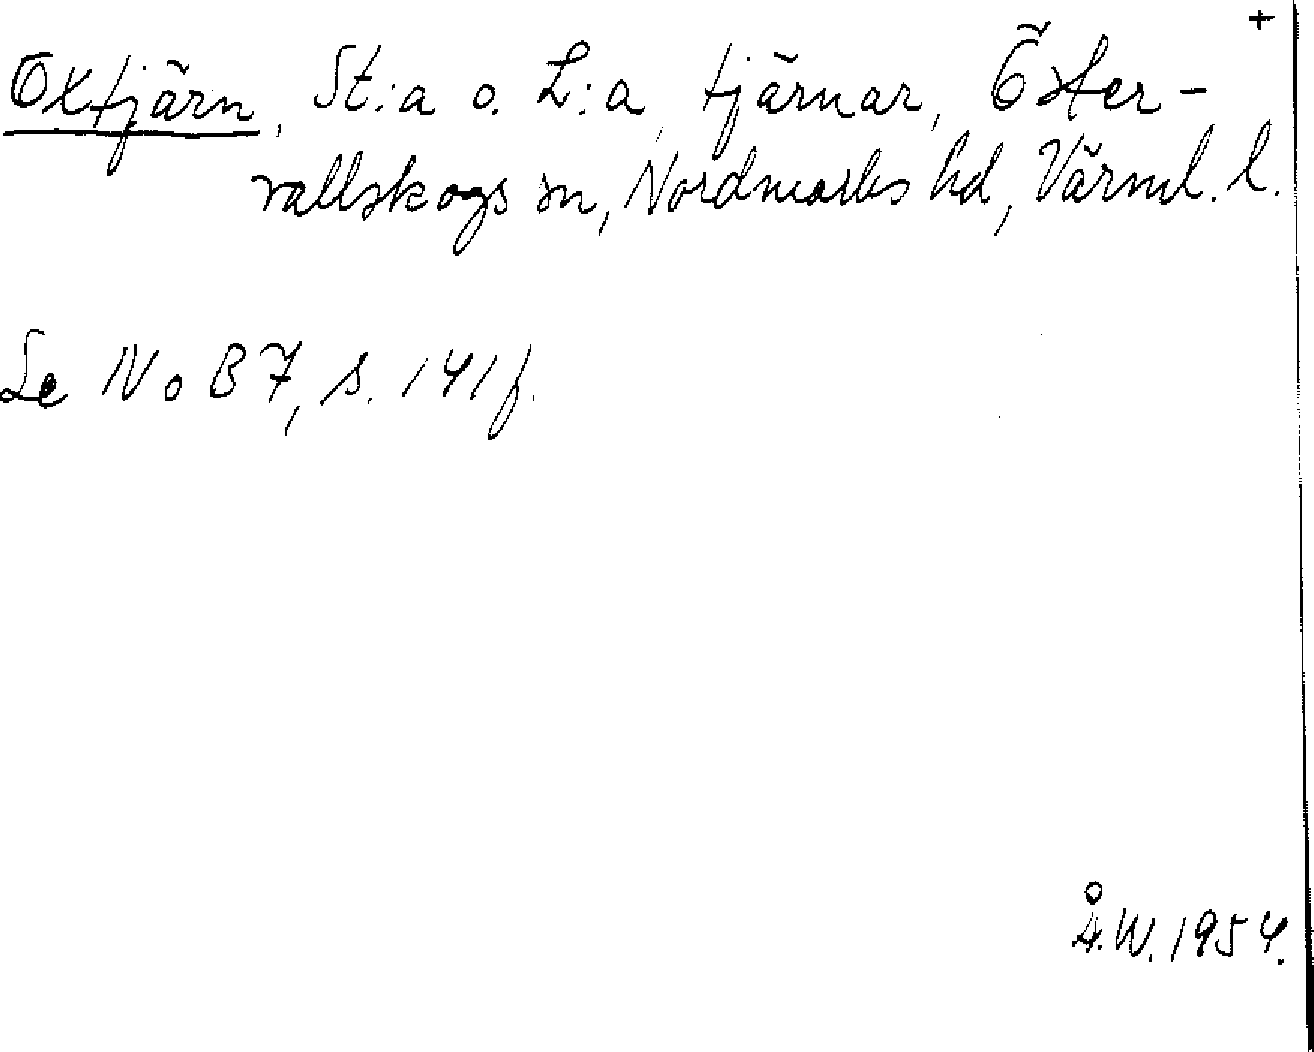 +
Oxtjärn, St:a o. L:a, tjärnar, Öster-
vallskogs sn, Nordmarks hd, Värml. l.
Se No B 7, s. 141 f.
Å.W. 1954.